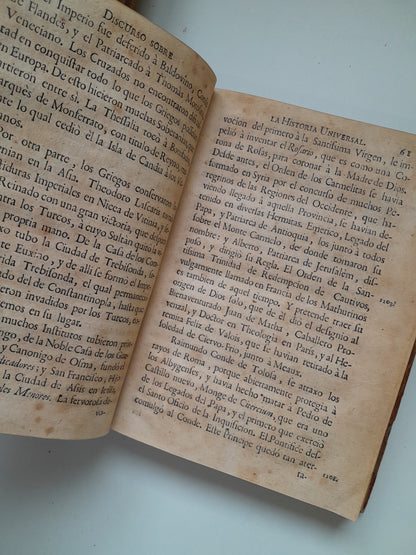 DISCURSO SOBRE
Imperio fue deferido à Baldovino, Conde
Flandes, y el Patriarcado à Thomàs
Veneciano. Los Cruzados no encontraron
tad en conquistar todo lo que los Griegos
en Europa. De esto hicieron muchas Soberanias, que
tieron entre sí. La Thesalia tocò à Bonifacio
arquès de Monferrato, con titulo de Reyno,
nte lo qual cediò el la Isla de Candia à
Por otra parte, los Griegos conservaron
nian en la Asia. Theodoro Lascaris tomò
Vestiduras Imperiales en Nicea de Vitinia, y
Reinado con una gran victoria, que
contra los Turcos, à cuyo Sultàn quitò
propria mano. De la Casa de los
xo tubo la Ciudad de Trebisonda,
te Euxino; y de alli se formò el Imperio
rida Trebisonda, el qual permaneciò
del de Constantinopla, hasta que
eron invadidos por los Turcos,
en su lugar.
muchos Institutos tubieron
ingo, de la Noble Casa de los
y Canonigo de Osma, fundò el
dicadores; y San Francisco,
la Ciudad de Asis en
les Menores. La fervorosa de-
vo-
LA HISTORIA UNIVERSAL. 61
vocion del primero à la Santissima Virgen, le im-
peliò à inventar el Rosario, que es como una Co-
rona de Rosas, para coronar à la Madre de Dios.
Desde antes, el Orden de los Carmelitas se havia
formado en Syria por el concurso de muchos Pe-
regrinos de las Regiones del Occidente, que ha-
viendo llegado à aquella Provincia, se havian di-
dido en diversas Hermitas. Emerico, Legado del
Papa, y Patriarca de Antioquia, los juntò à todos
sobre el Monte Carmelo, de donde tomaron su
nombre, y Alberto, Patriarca de Jerusalèn, dis-
puso, y dirigiò su Regla. El Orden de la San-
tissima Trinidad de Redempcion de Cautivos,
vulgarmente llamado en Francia de los Mathurinos 1205.
es tambien de aquel tiempo. Y pretende, traer su
origen de Dios solo, que de èl diò el designio al
Bienaventurado Juan de Matha, Caballero Pro-
venzal, y Doct. en Theologia en Paris, y al He-
remita Feliz de Valois, que se havia retirado à la
soledad de Ciervo-Frio, junto à Meaux.
Raimundo Conde de Tolosa, se atraxo los
rayos de Roma, porque abiertamente protegia à
los Albygenses, y havia hecho matar à Pedro de
Castilo nuevo, Monge de Cistercium, que era uno
de los Legados del Papa, y el primero que exerciò
el Santo Oficio de la Inquisicion. El Pontifice des-
comulgò al Conde. Este Principe quedò tan ater- 1208.
ra-